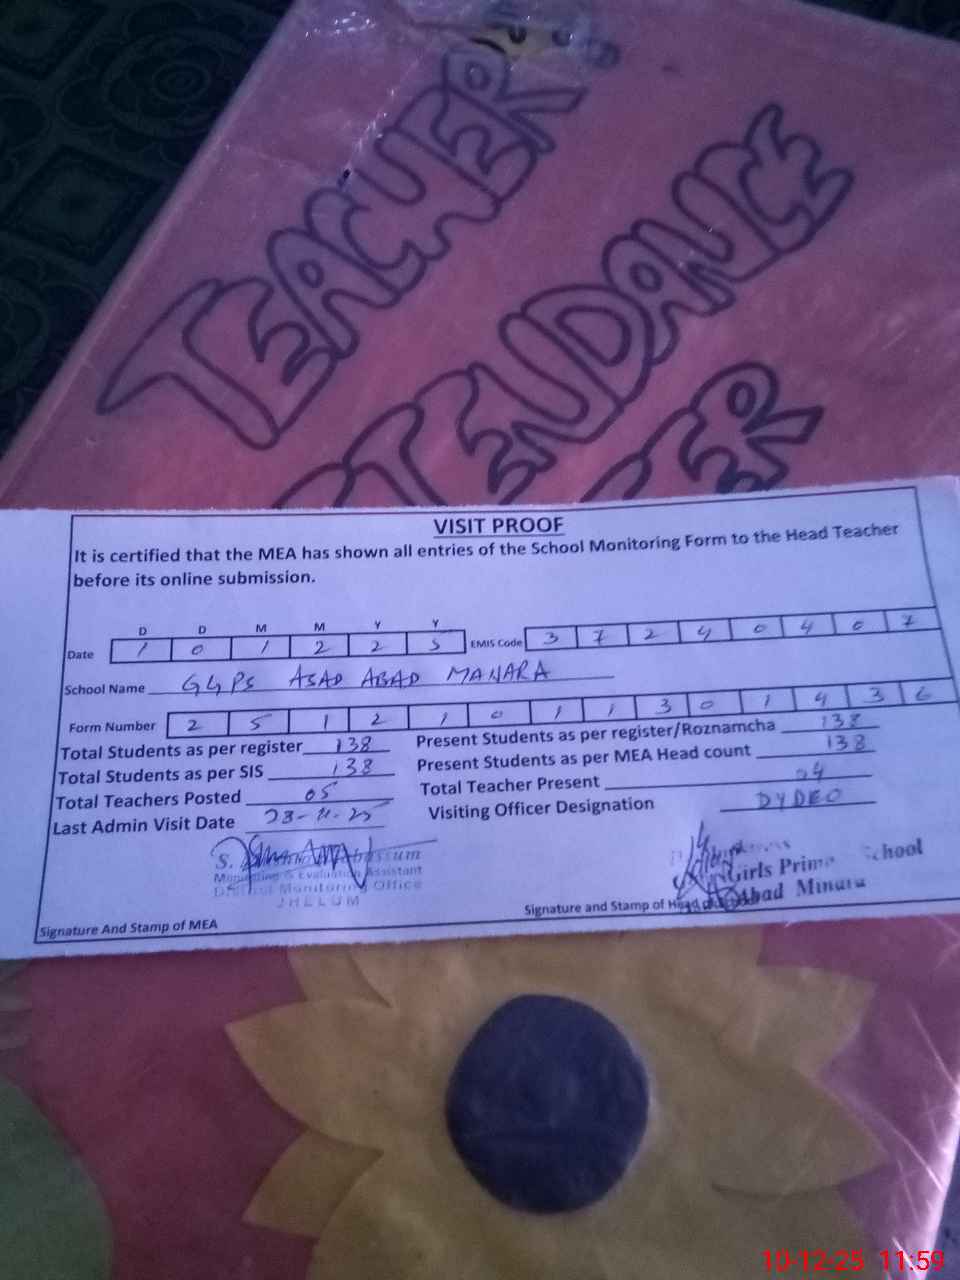 TEACHER
ATTENDANCE
VISIT PROOF
It is certified that the MEA has shown all entries of the School Monitoring Form to the Head Teacher
before its online submission.
D D M M Y Y
Date 1 0 1 2 2 5 EMIS Code 3 7 2 4 0 4 0 7
School Name GGPS ASAD ABAD MANARA
Form Number 2 5 1 2 1 0 1 1 3 0 1 4 3 6
Total Students as per register 138 Present Students as per register/Roznamcha 138
Total Students as per SIS 138 Present Students as per MEA Head count 138
Total Teachers Posted 05 Total Teacher Present 04
Last Admin Visit Date 23-11-25 Visiting Officer Designation DYDEO
S.
Monitoring & Evaluation Assistant
District Monitoring Office
JHELUM
Girls School
Abad Minara
Signature And Stamp of MEA Signature and Stamp of Head
10-12-25 11:59